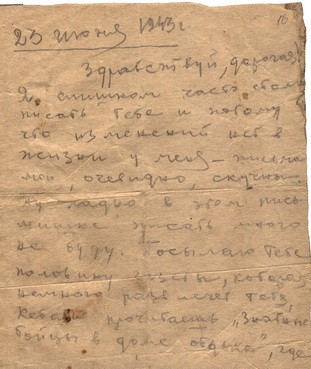 16
23 июня 1943 г
Здравствуй, дорогая!
Я слишком часто стал
писать тебе и потому
что изменений нет в
жизни у меня – письма
мои, очевидно, скучны.
Ну ладно в этом пись
писать много
не буду. Посылаю тебе
половину газеты, которая
немного развлечет тебя,
прочитаешь „Знатные
бойцы в доме отдыха", где